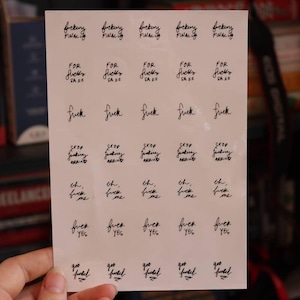 fucking fucking fucking fucking fucking
FINALLY FINALLY FINALLY FINALLY FINALLY
FOR FOR FOR FOR FOR
fucks fucks fucks fucks fucks
SAKE SAKE SAKE SAKE SAKE
fuck fuck fuck fuck fuck
STOP STOP STOP STOP STOP
fucking fucking fucking fucking fucking
AROUND AROUND AROUND AROUND AROUND
oh oh oh oh oh
fuck fuck fuck fuck fuck
me me me me me
fuck fuck fuck fuck fuck
YES YES YES YES YES
fucked fucked fucked fucked fucked